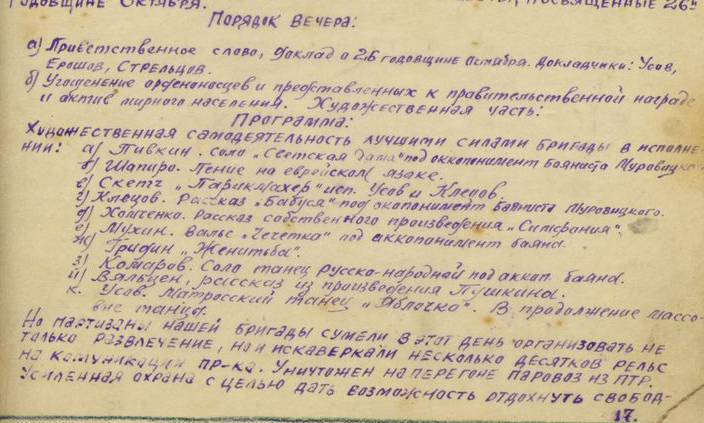 годовщине Октября. посвященные 26й
Порядок вечера:
а) Приветственное слово, доклад о 26 годовщине октября. Докладчики: Усов,
Ерошов, Стрельцов.
б) Угощенение орденоносцев и представленных к правительственной награде
и актив мирного населения. Художественная часть:
Программа:
Художественная самодеятельность лучшими силами бригады в исполне-
нии: а) Пивкин. Соло „Светская дама" под аккопонимент баяниста Муровицкого
б) Шапиро. Пение на еврейском языке.
в) Скетч „Парикмахер" исп. Усов и Клецов.
г) Клецов. Рассказ „Бабуся" под акопонимент баяниста Муровицкого.
д) Хомченко. Рассказ собственного произведения „Симфания".
е) Мухин. Вальс „Чечетка" под аккопонимент баяна.
ж) Гридин „Женитьба".
з) Комаров. Соло танец русско-народный под аккоп. баяна.
и) Вяльцен, рассказ из произведения Пушкина.
к. Усов. Матросский танец „Яблочко". В продолжение массо-
вые танцы.
Но партизаны нашей бригады сумели в этот день организовать не
только развлечение, но и искаверкали несколько десятков рельс
на комуникации пр-ка. Уничтожен на перегоне паровоз из ПТР.
Усиленная охрана с целью дать возможность отдохнуть свобод-
17.